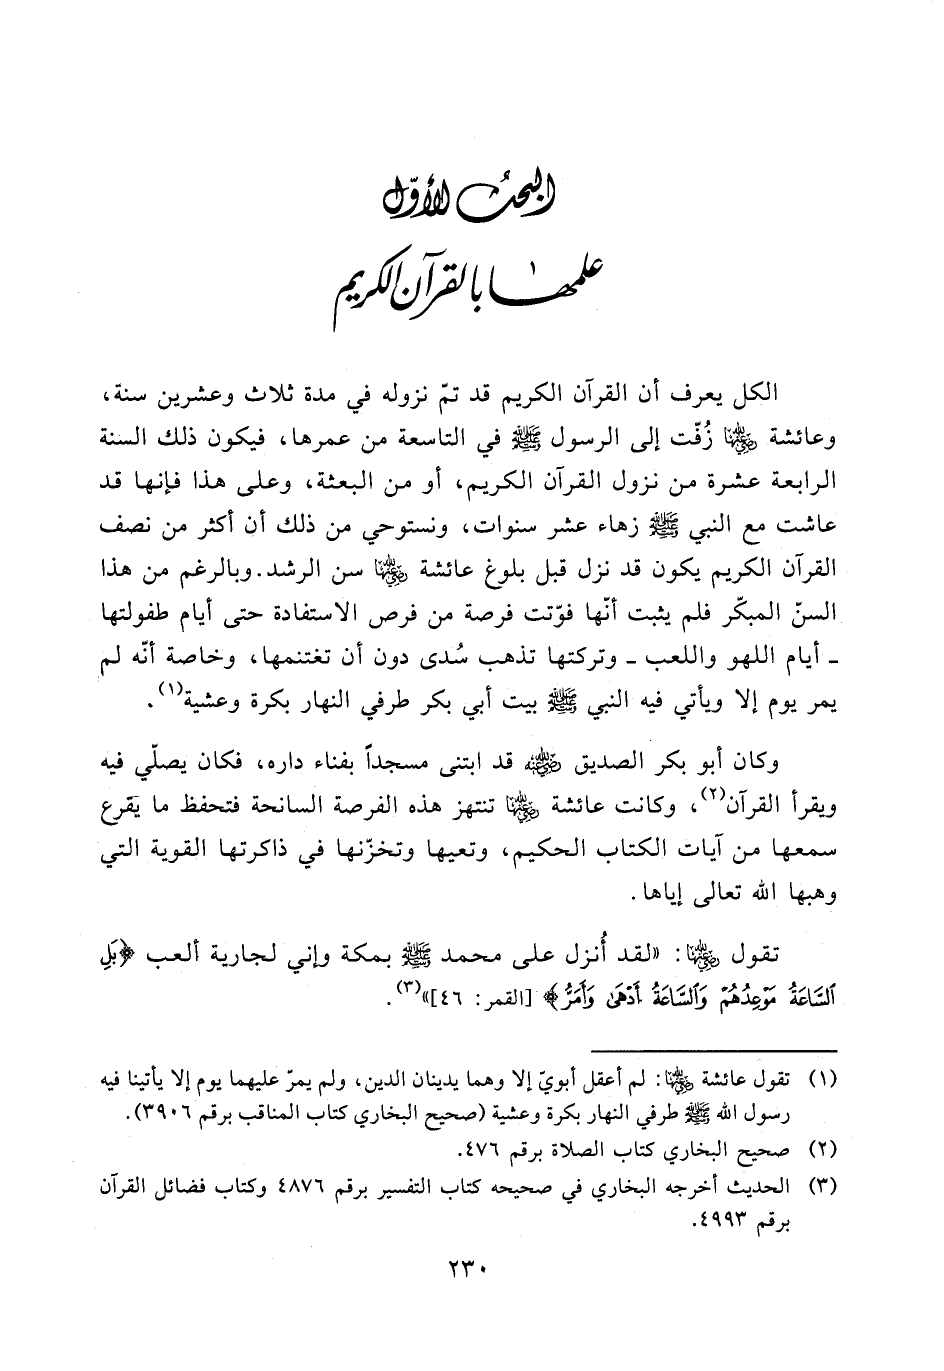 البحث الأوّل
علمها بالقرآن الكريم
الكل يعرف أن القرآن الكريم قد تمّ نزوله في مدة ثلاث وعشرين سنة،
وعائشة رضي الله عنها زُفّت إلى الرسول ﷺ في التاسعة من عمرها، فيكون ذلك السنة
الرابعة عشرة من نزول القرآن الكريم، أو من البعثة، وعلى هذا فإنها قد
عاشت مع النبي ﷺ زهاء عشر سنوات، ونستوحي من ذلك أن أكثر من نصف
القرآن الكريم يكون قد نزل قبل بلوغ عائشة رضي الله عنها سن الرشد. وبالرغم من هذا
السنّ المبكّر فلم يثبت أنّها فوّتت فرصة من فرص الاستفادة حتى أيام طفولتها
ـ أيام اللهو واللعب ـ وتركتها تذهب سُدى دون أن تغتنمها، وخاصة أنّه لم
يمر يوم إلا ويأتي فيه النبي ﷺ بيت أبي بكر طرفي النهار بكرة وعشية(١).
وكان أبو بكر الصديق رضي الله عنه قد ابتنى مسجداً بفناء داره، فكان يصلّي فيه
ويقرأ القرآن(٢)، وكانت عائشة رضي الله عنها تنتهز هذه الفرصة السانحة فتحفظ ما يقرع
سمعها من آيات الكتاب الحكيم، وتعيها وتخزّنها في ذاكرتها القوية التي
وهبها الله تعالى إياها.
تقول رضي الله عنها: «لقد أُنزل على محمد ﷺ بمكة وإني لجارية ألعب ﴿بَلِ
ٱلسَّاعَةُ مَوْعِدُهُمْ وَٱلسَّاعَةُ أَدْهَىٰ وَأَمَرُّ﴾ [القمر: ٤٦]»(٣).
(١) تقول عائشة رضي الله عنها: لم أعقل أبويّ إلا وهما يدينان الدين، ولم يمرّ عليهما يوم إلا يأتينا فيه
رسول الله ﷺ طرفي النهار بكرة وعشية (صحيح البخاري كتاب المناقب برقم ٣٩٠٦).
(٢) صحيح البخاري كتاب الصلاة برقم ٤٧٦.
(٣) الحديث أخرجه البخاري في صحيحه كتاب التفسير برقم ٤٨٧٦ وكتاب فضائل القرآن
برقم ٤٩٩٣.
٢٣٠